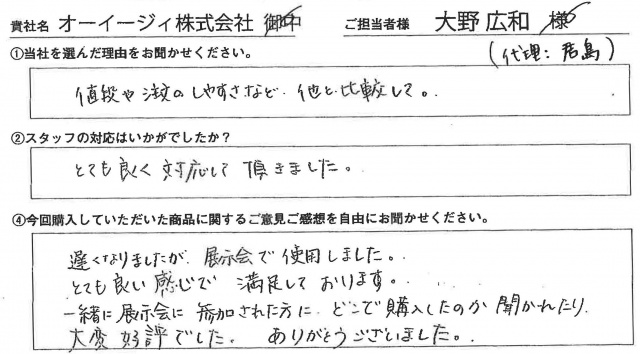 貴社名 オーイージィ株式会社 御中 ご担当者様 大野 広和 様
(代理: 君島)
①当社を選んだ理由をお聞かせください。
値段や注文のしやすさなど、他と比較して。
②スタッフの対応はいかがでしたか?
とても良く対応して頂きました。
④今回購入していただいた商品に関するご意見ご感想を自由にお聞かせください。
遅くなりましたが、展示会で使用しました。
とても良い感じで 満足しております。
一緒に展示会に参加された方に、どこで購入したのか聞かれたり、
大変好評でした。 ありがとうございました。